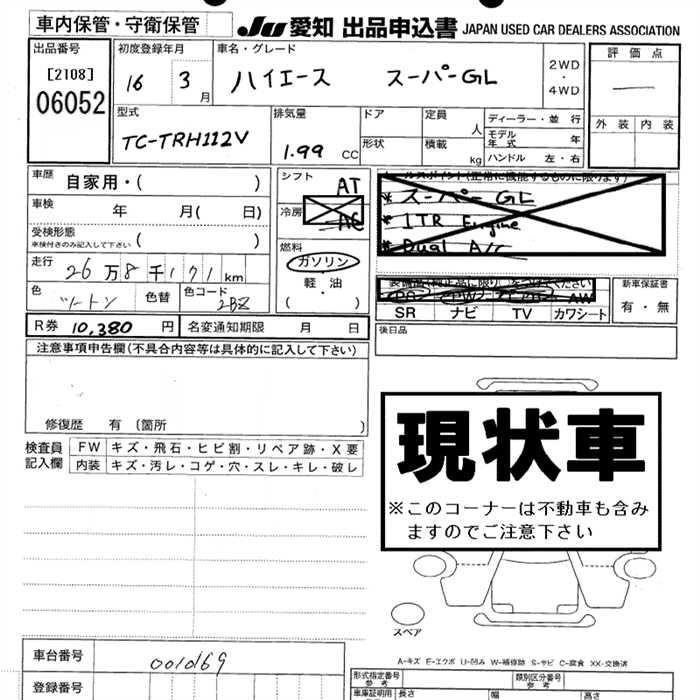 車内保管・守衛保管
JU 愛知 出品申込書 JAPAN USED CAR DEALERS ASSOCIATION
出品番号
[2108]
06052
初度登録年月
16 3 月
車名・グレード
ハイエース スーパーGL
2WD
・
4WD
評価点
外装 内装
型式
TC-TRH112V
排気量
1.99 CC
ドア
形状
定員 人
積載 kg
ディーラー・並行
モデル年式 年
ハンドル 左・右
車歴 自家用・( )
車検 年 月( 日)
受検形態
車検付きのみ記入して下さい ( )
走行 26万8千171 km
色 ツートン 色替
色コード 2BZ
シフト AT
冷房 AC
燃料
ガソリン
軽・油
( )
セールスポイント(正常に機能するものに限ります)
* スーパーGL
* 1TR Engine
* Dual A/C
AW
SR ナビ TV カワシート
新車保証書
有・無
R券 10,380 円 名変通知期限 月 日
後日品
注意事項申告欄(不具合内容等は具体的に記入して下さい)
修復歴 有 (箇所 )
検査員記入欄
FW キズ・飛石・ヒビ割・リペア跡・X要
内装 キズ・汚レ・コゲ・穴・スレ・キレ・破レ
現状車
※このコーナーは不動車も含み
ますのでご注意下さい
スペア
A-キズ E-エクボ U-凹み W-補修跡 S-サビ C-腐食 XX-交換済
車台番号 0010169
登録番号
形式指定番号
参考
類別区分番号
参考
車庫証明用
参考
長さ 幅 高さ